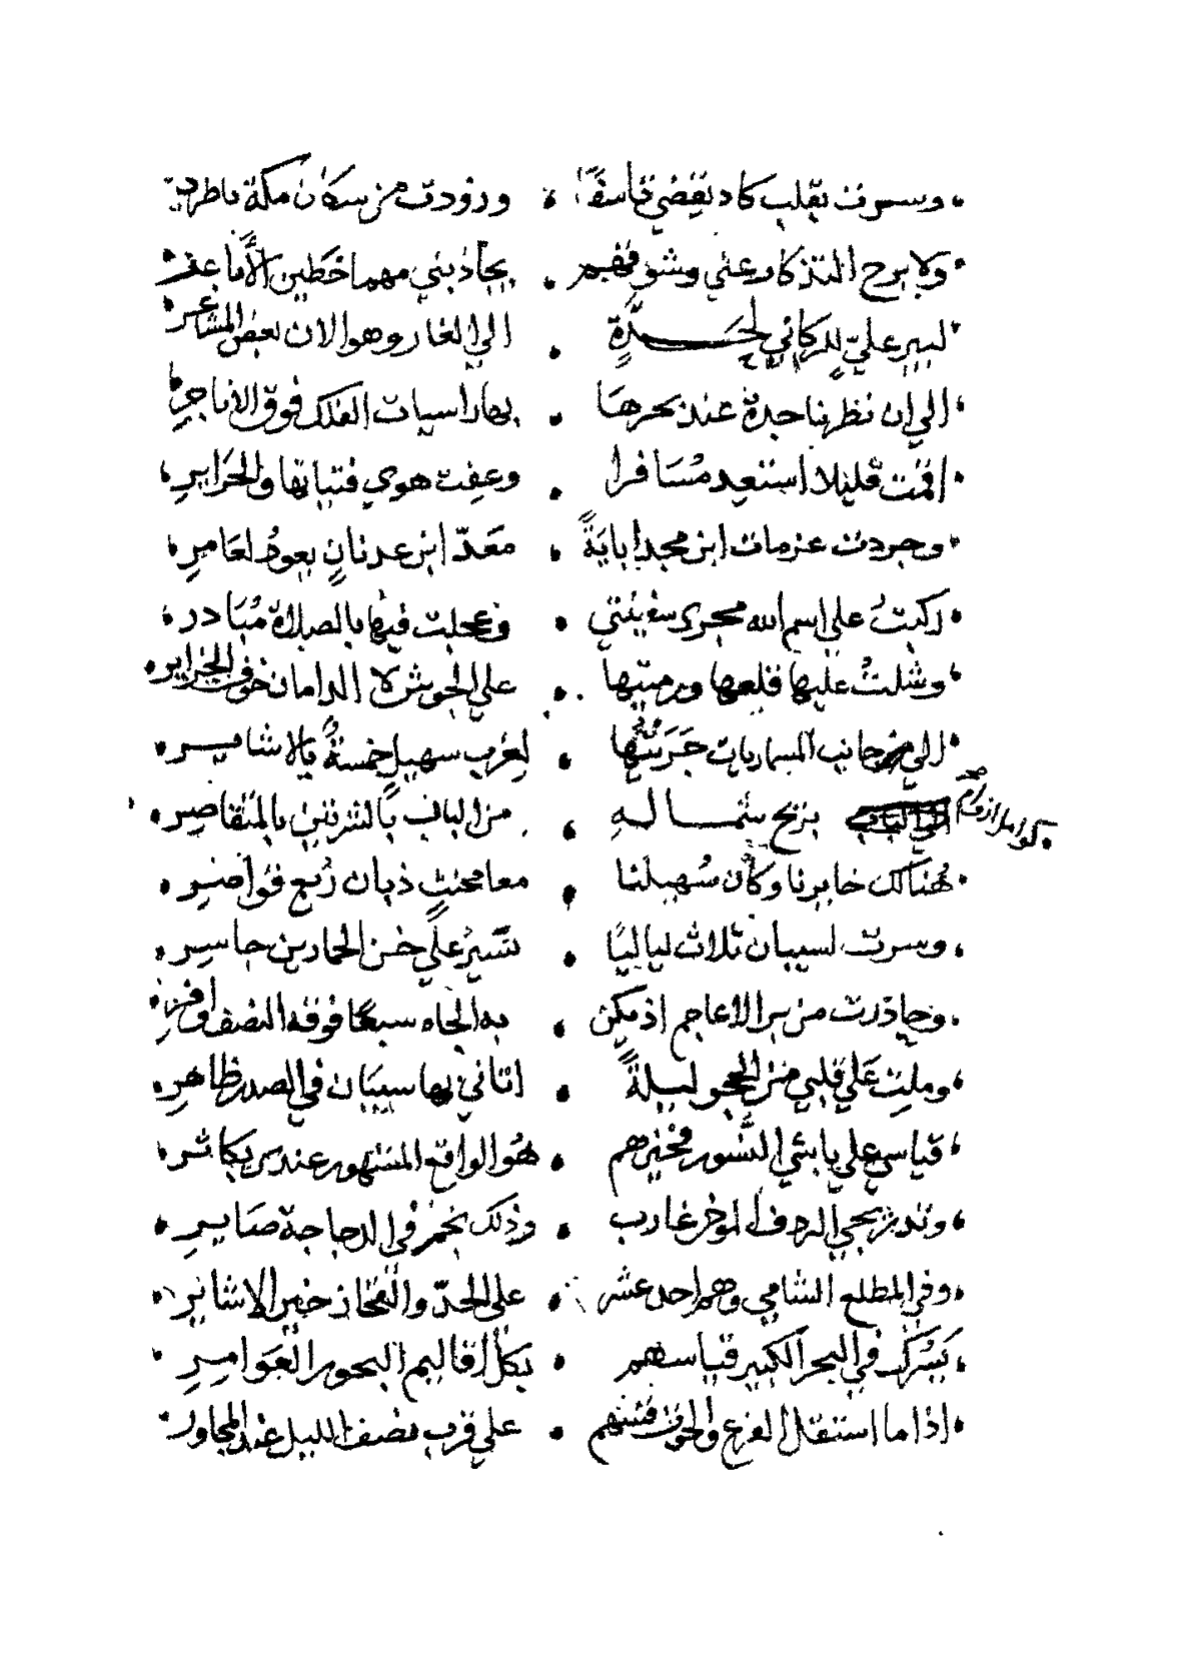 وسرت بقلب كاد يقضي تاسفًا وزودت من سكان مكة ناظري
ولا برح التذكار عني وشوقهم يجاذبني مهما خطين الأباعر
لبير علي للركاني لحدّةٍ الي الغار وهو الان بعض المشاعر
الي ان نظرنا جدة عند بحرها بها راسيات الفلك فوق الاناجر
اقمت قليلا استعيد مسَافرا وعفت هوي فتياتها والحَرايرِ
وجردت عزمات ابن مجد ابايَةً معَدّ ابن عدنانٍ يعودُ لعَامرِ
ركبتُ علي اسم الله مجرى سفينتي وعجلت فيها بالصلاة مُبَادر
وشلتُ عليها قلعها ورميتها علي الجوش لا الدامان خوف الجزاير
الي من جانب المسماريات جَرَيتُها لغرب سهيلٍ خمسةً بالاشاير
بريح شماله من الباب بالترتيب بالمتقاصر
كوامل ازوام
هُنالك خايرنا وكان سُهيلنا معا محنثٍ ذبان رُبع قواصر
وسرت لسيبان ثلاث لياليًا تسَيرُ علي خن الحمارين جاسِر
وحاذرت من بر الاعاجم اذ يكن به الجاه سبعًا فوقه النصف وافر
وملت عَلي قلبي من الحجو ليلةً اتاني بها سيبَان في الصدر ظاهر
قياسي علي يا بشي النسُور فخيرهم هُو الواقع المشهور عند مكاثر
وند بنجي الردف الموخر غارب وذلك نجم في الدجاجة صَاير
وفي المطلع الشامي وهم احد عشر علي الحدّ والنفاذ خير الاشاير
يَسُرك في البحر الكبير قياسهم بكل اقاليم البحور العَوامرِ
اذا ما استقل الفرغ والحوت فتشهم علي قرب نصف الليل عند المجاور